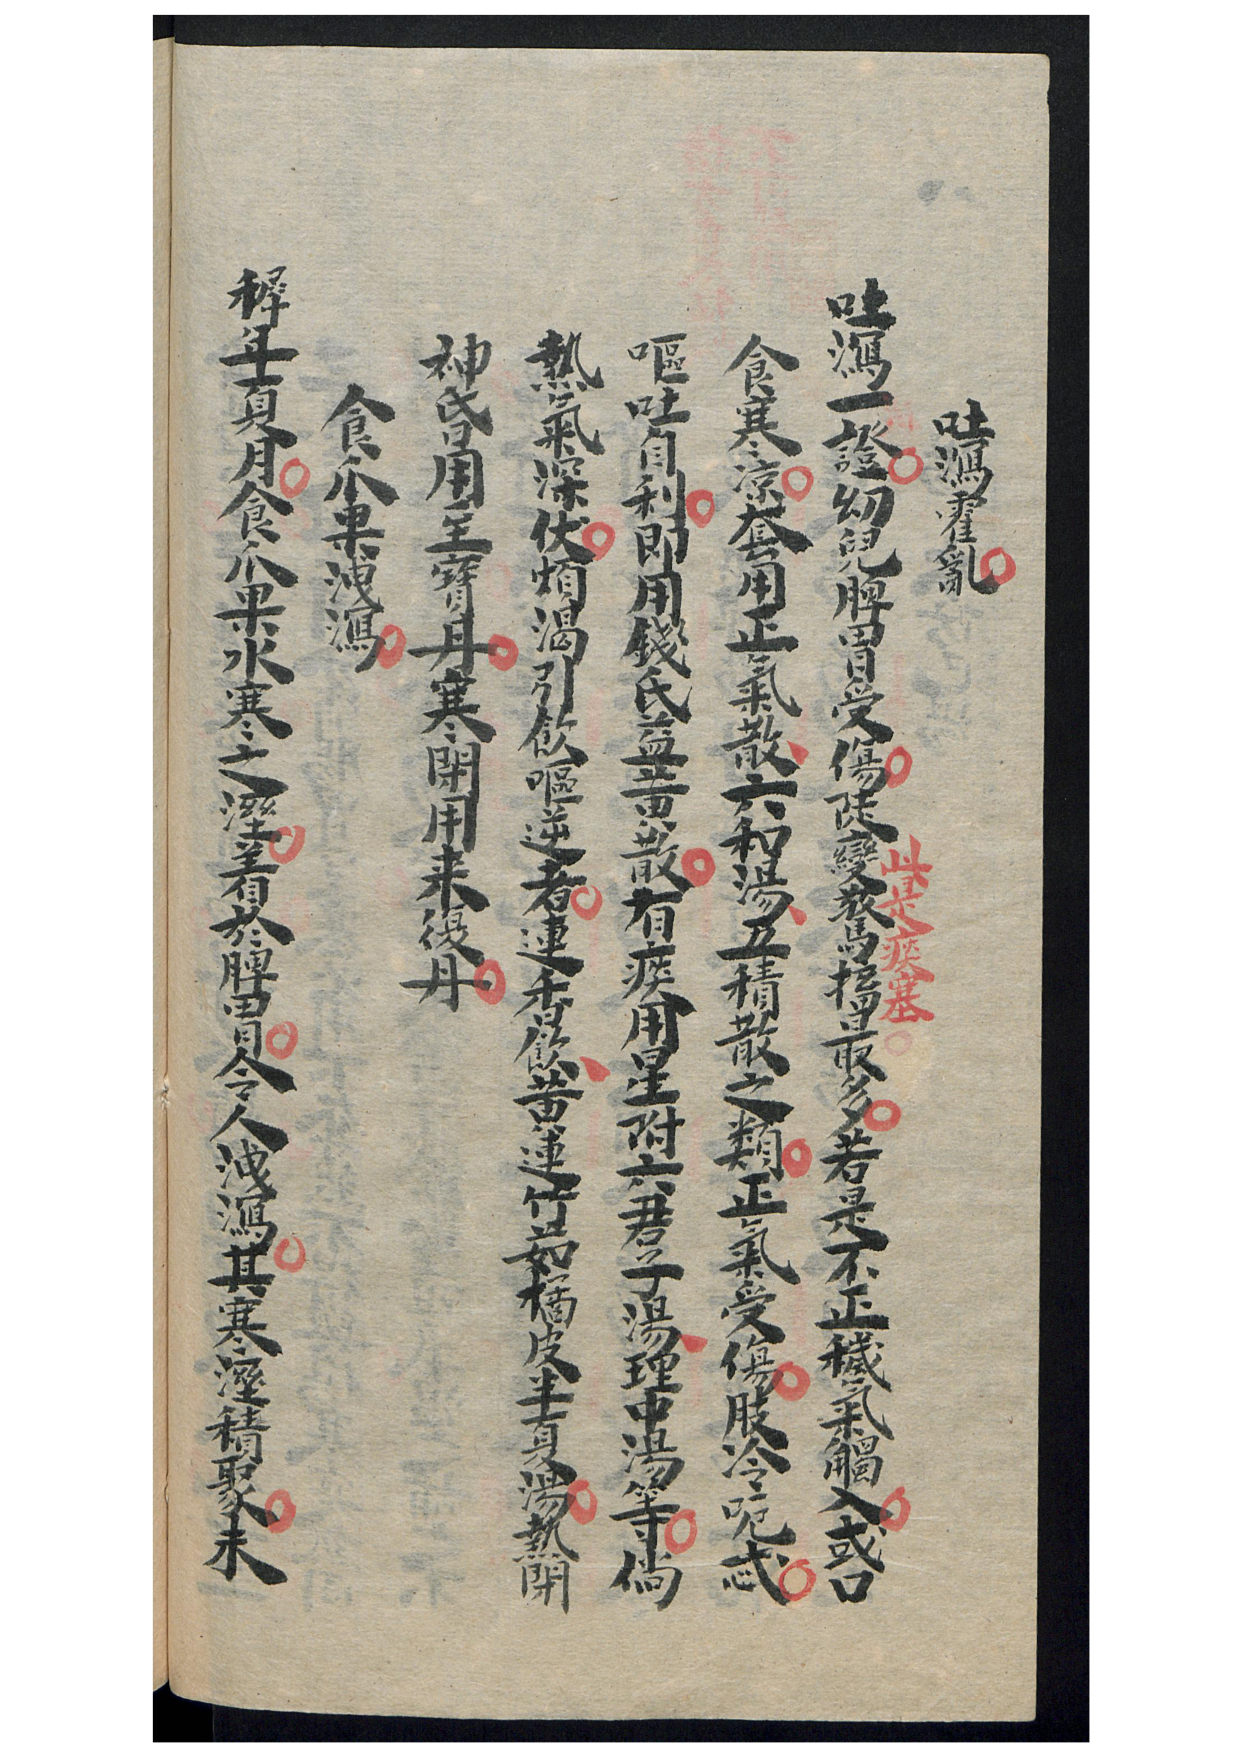 吐瀉霍亂
吐瀉一證幼兒脾胃受傷陡變驚搐最多若是不正穢氣觸入或口
此是痰塞
食寒涼套用正氣散六和湯五積散之類正氣受傷肢冷呃忒
嘔吐自利即用錢氏益黃散有痰用星附六君子湯理中湯等倘
熱氣深伏煩渴引飲嘔逆者連香飲黃連竹茹橘皮半夏湯熱閉
神昏用至寶丹寒閉用来復丹
食瓜果洩瀉
稺年夏月食瓜果水寒之溼着於脾胃令人洩瀉其寒溼積聚未